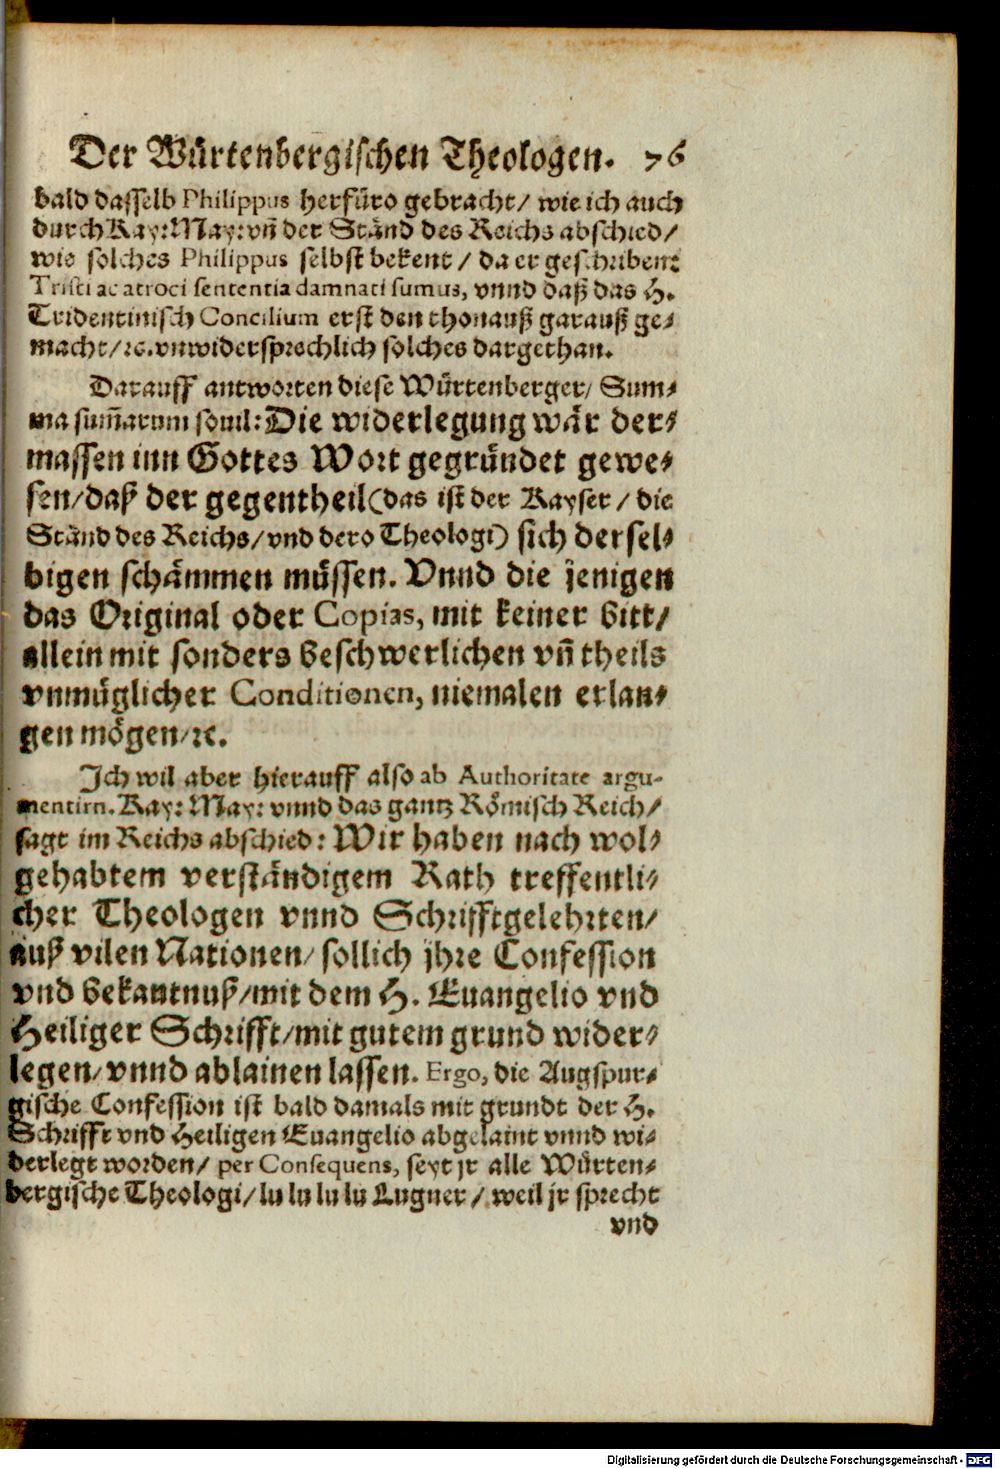 Der Würtenbergischen Theologen. 76
bald dasselb Philippus herfüro gebracht/ wie ich auch
durch Kay: May: vn̄ der Ständ des Reichs abschied/
wie solches Philippus selbst bekent / da er geschriben:
Tristi ac atroci sententia damnati sumus, vnnd daß das H.
Tridentinisch Concilium erst den thonauß garauß ge-
macht/ ꝛc. vnwidersprechlich solches dargethan.
Darauff antworten diese Würtenberger/ Sum-
ma sum̄arum souil: Die widerlegung wär der-
massen inn Gottes Wort gegründet gewe-
sen/ daß der gegentheil (das ist der Kayser / die
Ständ des Reichs/ vnd dero Theologi) sich dersel-
bigen schämmen müssen. Vnnd die jenigen
das Original oder Copias, mit keiner bitt/
allein mit sonders beschwerlichen vn̄ theils
vnmüglicher Conditionen, niemalen erlan-
gen mögen/ ꝛc.
Ich wil aber hierauff also ab Authoritate argu-
mentirn. Kay: May: vnnd das gantz Römisch Reich/
sagt im Reichs abschied: Wir haben nach wol-
gehabtem verständigem Rath treffentli-
cher Theologen vnnd Schrifftgelehrten/
auß vilen Nationen/ sollich jhre Confession
vnd bekantnuß/ mit dem H. Euangelio vnd
Heiliger Schrifft/ mit gutem grund wider-
legen/ vnnd ablainen lassen. Ergo, die Augspur-
gische Confession ist bald damals mit grundt der H.
Schrifft vnd Heiligen Euangelio abgelaint vnnd wi-
derlegt worden/ per Consequens, seyt jr alle Würten-
bergische Theologi/ lu lu lu lu Lugner/ weil jr sprecht
vnd
Digitalisierung gefördert durch die Deutsche Forschungsgemeinschaft - DFG